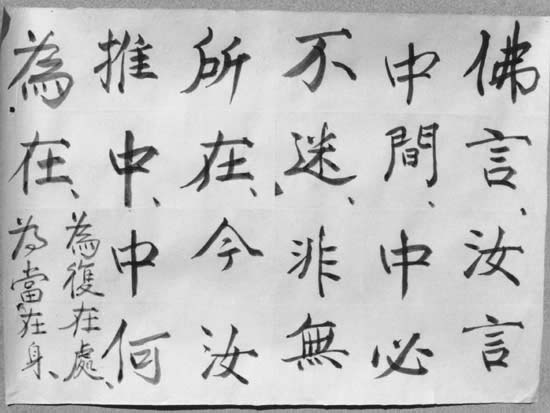 佛言、汝言
中間、中必
不迷、非無
所在、今汝
推中、中何
為在、
為復在處、
為當在身、